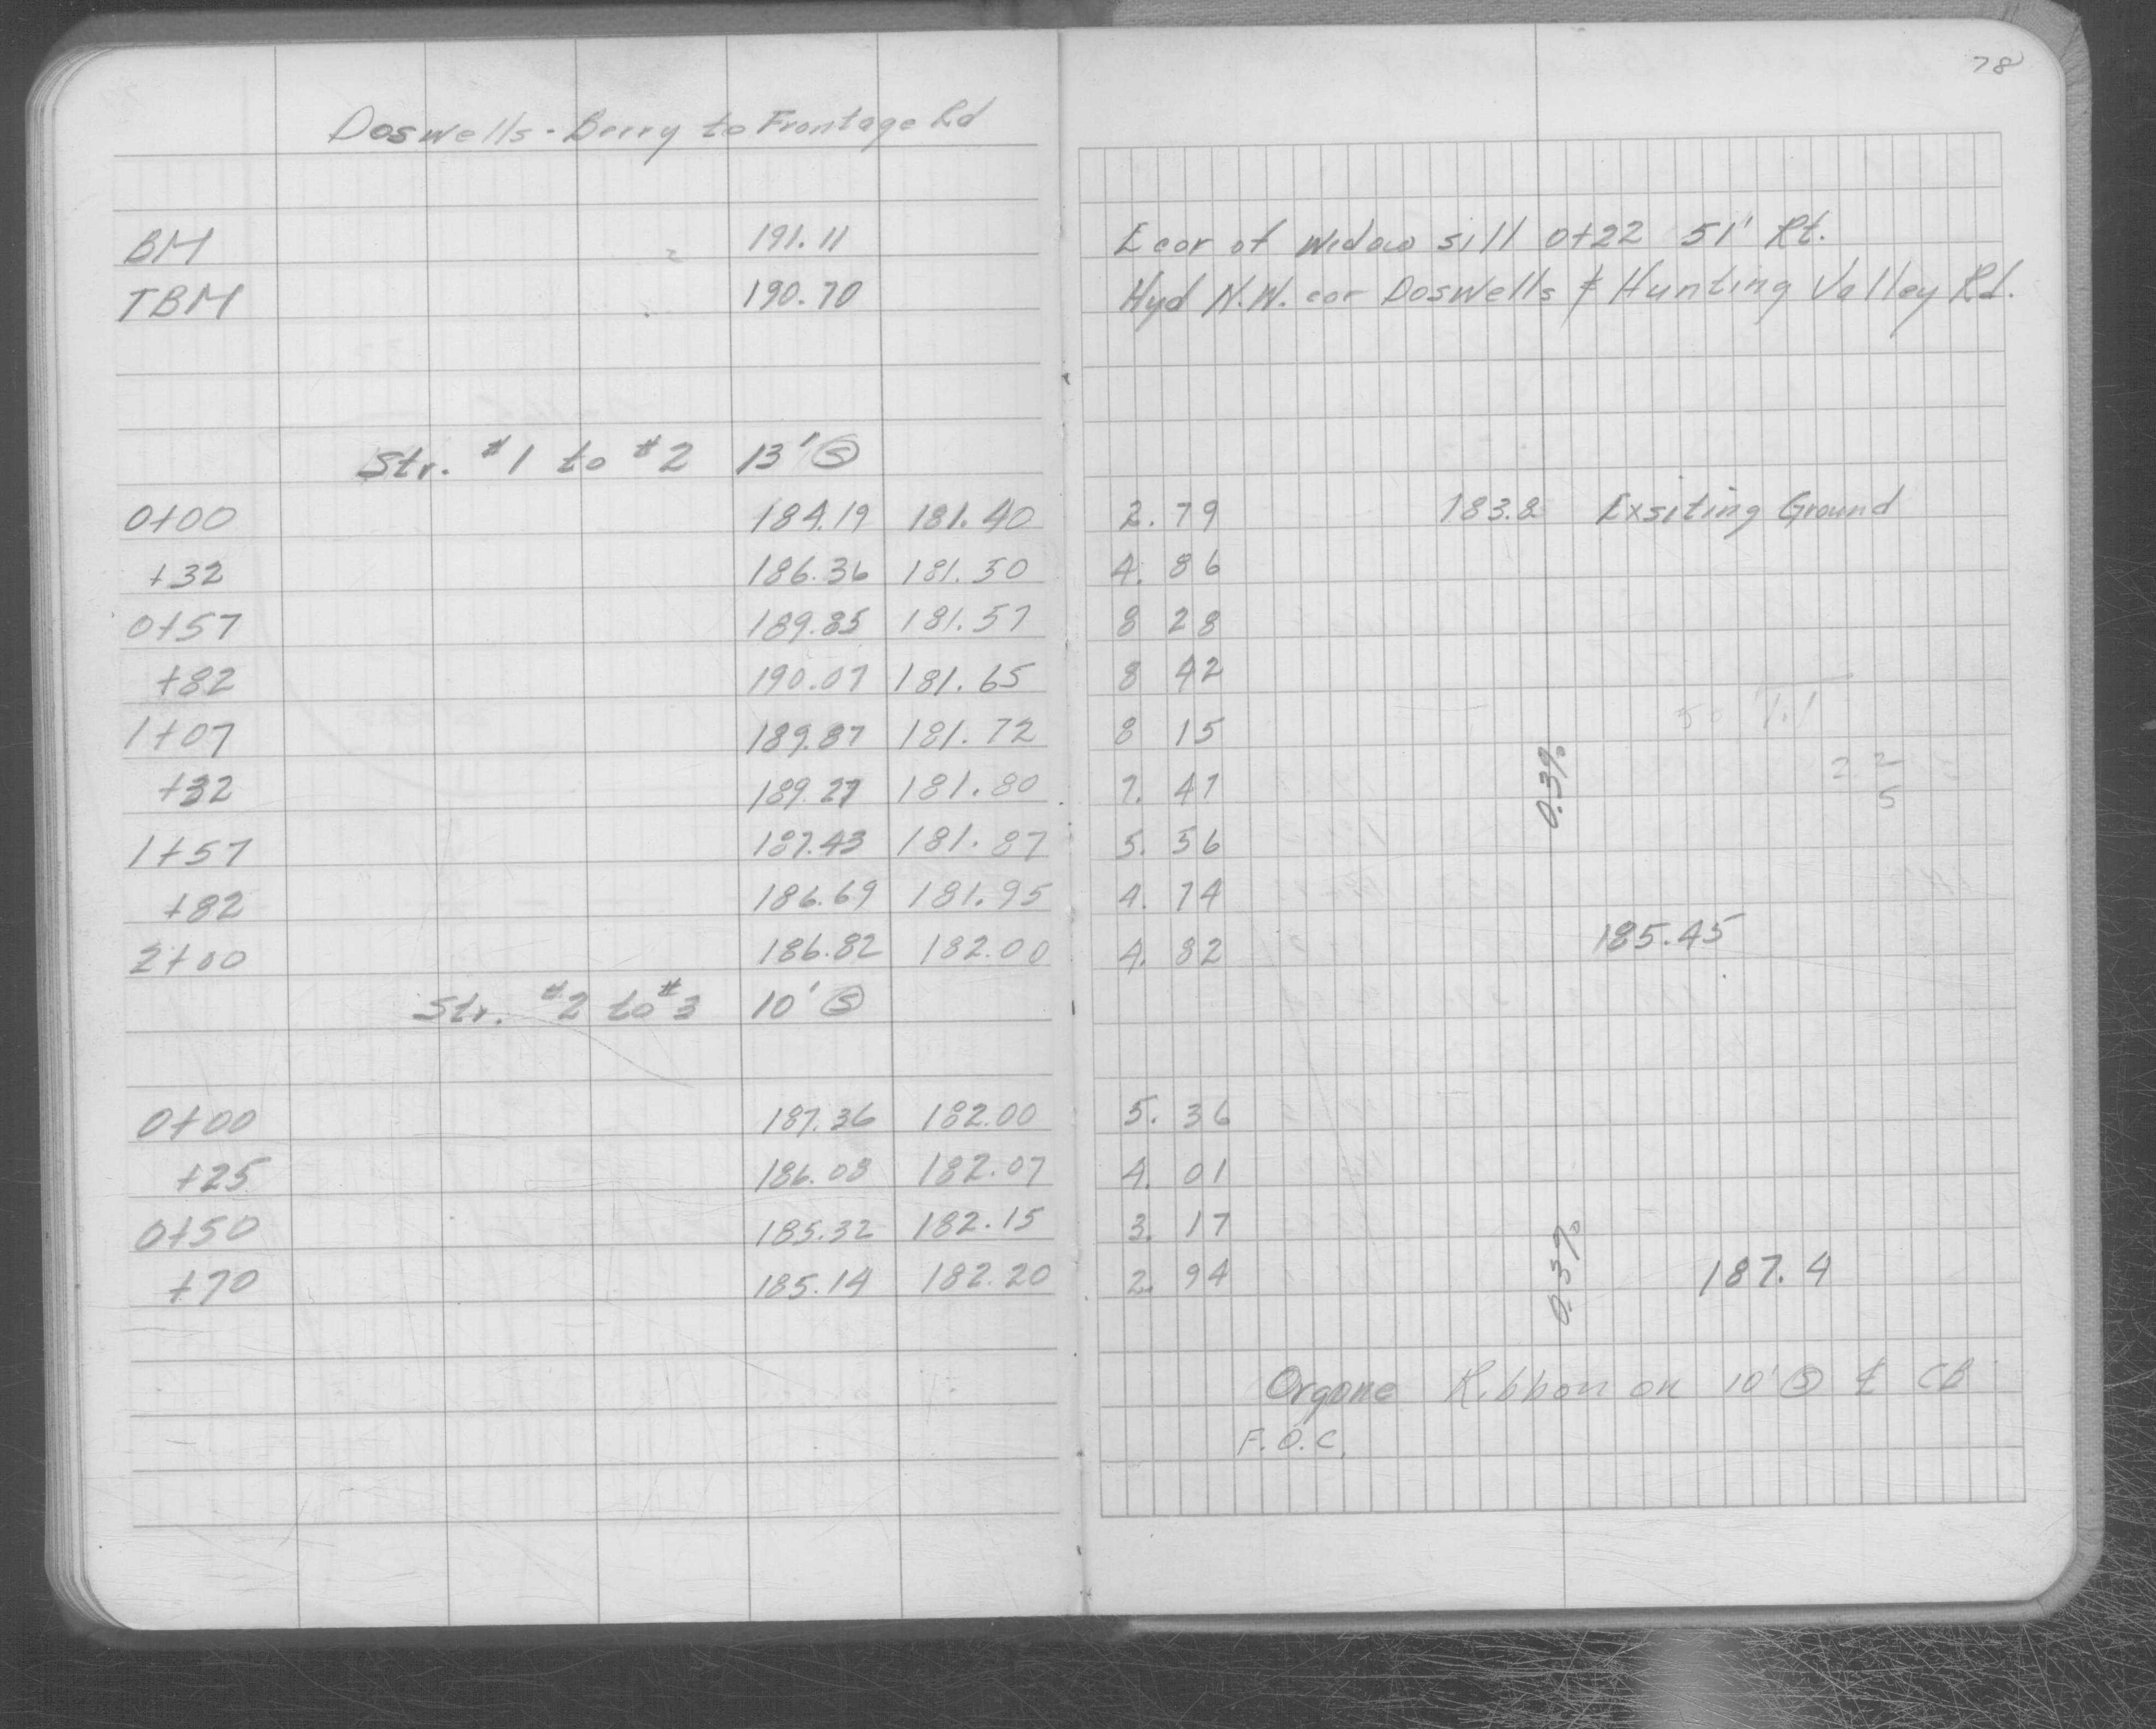 78
Doswells - Berry to Frontage Rd
BM 191.11 E cor of Widow sill 0+22 51' Rt.
TBM 190.70 Hyd N.W. cor Doswells & Hunting Valley Rd.
Str. #1 to #2 13' Ⓢ
0+00 184.19 181.40 2.79 183.8 Exsiting Ground
+32 186.36 181.50 4.86
0+57 189.85 181.57 8 28
+82 190.07 181.65 8 42
1+07 189.87 181.72 8 15
+32 189.27 181.80 7.47
0.3%
1+57 187.43 181.87 5.56
+82 186.69 181.95 4.74
185.45
2+00 186.82 182.00 4.82
Str. #2 to #3 10' Ⓢ
0+00 187.36 182.00 5.36
+25 186.08 182.07 4.01
0+50 185.32 182.15 3.17
0.3%
+70 185.14 182.20 2.94 187.4
Orgone Ribbon on 10' Ⓢ & CB
F.O.C.